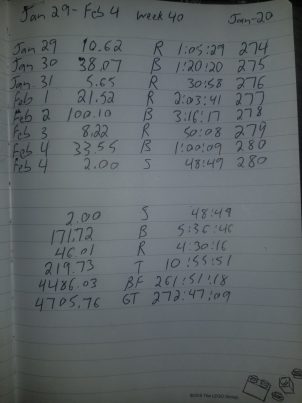 Jan 29 - Feb 4 Week 40 Jan-20
Jan 29 10.62 R 1:05:29 274
Jan 30 38.07 B 1:20:20 275
Jan 31 5.65 R 30:58 276
Feb 1 21.52 R 2:03:41 277
Feb 2 100.10 B 3:16:17 278
Feb 3 8.22 R 50:08 279
Feb 4 33.55 B 1:00:09 280
Feb 4 2.00 S 48:49 280
2.00 S 48:49
171.72 B 5:36:46
46.01 R 4:30:16
219.73 T 10:55:51
4486.03 BF 261:51:18
4705.76 GT 272:47:09